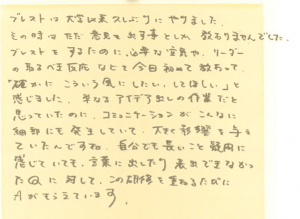 ブレストは大学以来久しぶりにやりました。
その時はただ意見を出す事としか、教わりませんでした。
ブレストをするのに、必要な空気や、リーダー
の取るべき反応などを今日初めて教わって、
「確かにこういう風にしたい、してほしい」と
感じました。単なるアイデア出しの作業だと
思っていたのに、コミュニケーションがこんなに
細部にも発生していて、大きく影響を与え
ていたんですね。自分でも長いこと疑問に
感じていても、言葉に出したり表出できなかっ
たQに対して、この研修を重ねるたびに
Aがもらえています。